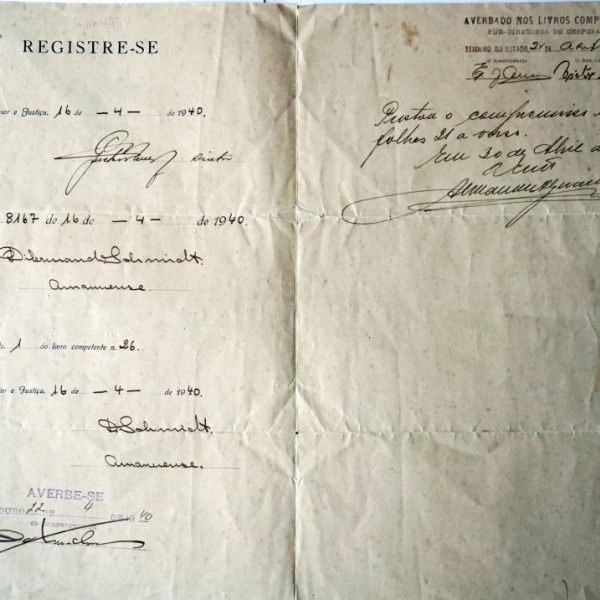 REGISTRE-SE
ior e Justiça, 16 de — 4 — de 1940.
Director
8167 de 16 de — 4 — de 1940
Schmidt.
Amanuense.
1 do livro competente n. 26.
ior e Justiça, 16 de — 4 — de 1940.
D Schmidt.
Amanuense.
AVERBE-SE
22 DE 4 DE 1940
AVERBADO NOS LIVROS COMP
SUB-DIRETORIA DE DESPESA
TESOURO DO ESTADO, 24 DE
Prestou o compromisso
folhas 21 e verso.
Em 30 de Abril de